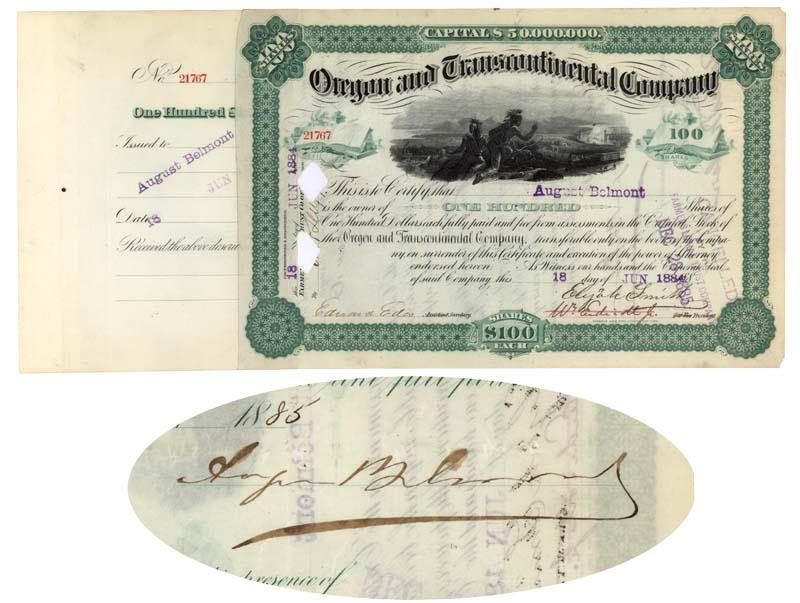 CAPITAL $50,000,000.
Oregon and Transcontinental Company
No. 21767
One Hundred S
Issued to
August Belmont
18 JUN
Dated
Received the above descri
21767
100
SHARES
18 JUN 1884
This is to Certify that August Belmont
is the owner of ONE HUNDRED Shares of
One Hundred Dollars each fully paid and free from assessments in the Capital Stock of
the Oregon and Transcontinental Company, transferable only on the books of the Compa-
ny, on surrender of this Certificate and execution of the power of Attorney
endorsed hereon. As Witness our hands and the Corporate Seal
of said Company this 18 day of JUN 1884
Assistant Secretary
President
SHARES
$100
EACH
1885
August Belmont
presence of